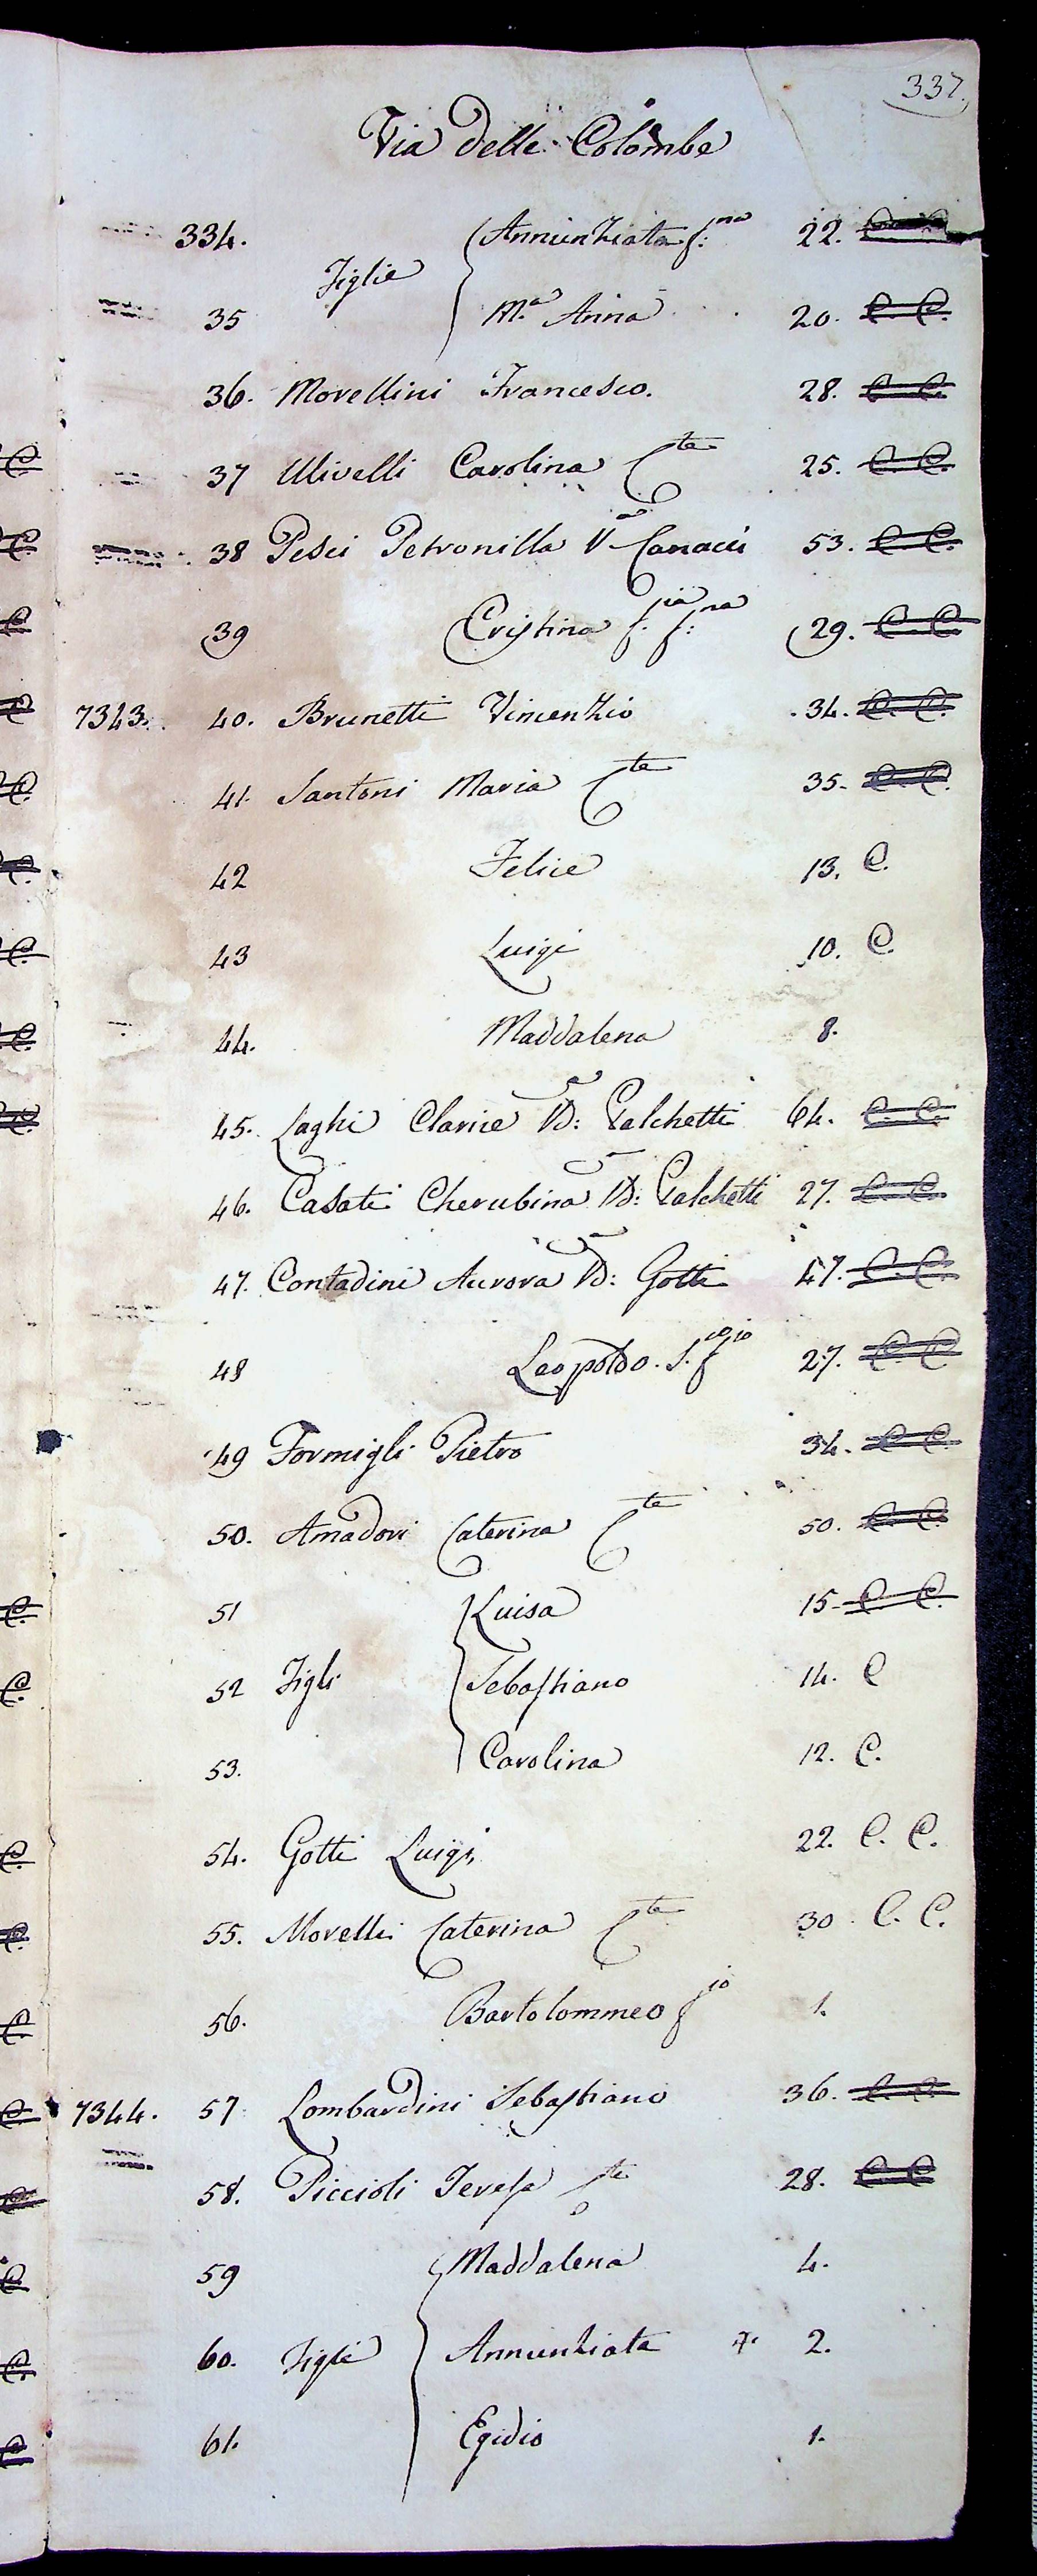 337.
Via delle Colombe
334. Annunziata f:na 22. C. C.
Figlie
35 M.a Anna 20. C. C.
36. Morellini Francesco. 28. C. C.
37 Ulivelli Carolina Cte 25. C. C.
38 Pesci Petronilla Va Canacci 53. C. C.
39 Cristina f.ia f:na 29. C. C.
7343. 40. Brunetti Vincenzio 34. C. C.
41. Santoni Maria Cte 35. C. C.
42 Felice 13. C.
43 Luigi 10. C.
44. Maddalena 8.
45. Laghi Clarice Va: Galchetti 64. C. C.
46. Casati Cherubina Va: Galchetti 27. C. C.
47. Contadini Aurora Va: Gotti 47. C. C.
48 Leopoldo. S. fio 27. C. C.
49 Formigli Pietro 34. C. C.
50. Amadori Caterina Cte 50. C. C.
51 Luisa 15. C. C.
52 Figli Sebastiano 14. C
53. Carolina 12. C.
54. Gotti Luigi 22. C. C.
55. Morelli Caterina Cte 30. C. C.
56. Bartolommeo fio 1.
7344. 57 Lombardini Sebastiano 36. C. C.
58. Piccioli Teresa Cte 28. C. C
59 Maddalena 4.
60. Figli Annunziata 2.
61. Egidio 1.